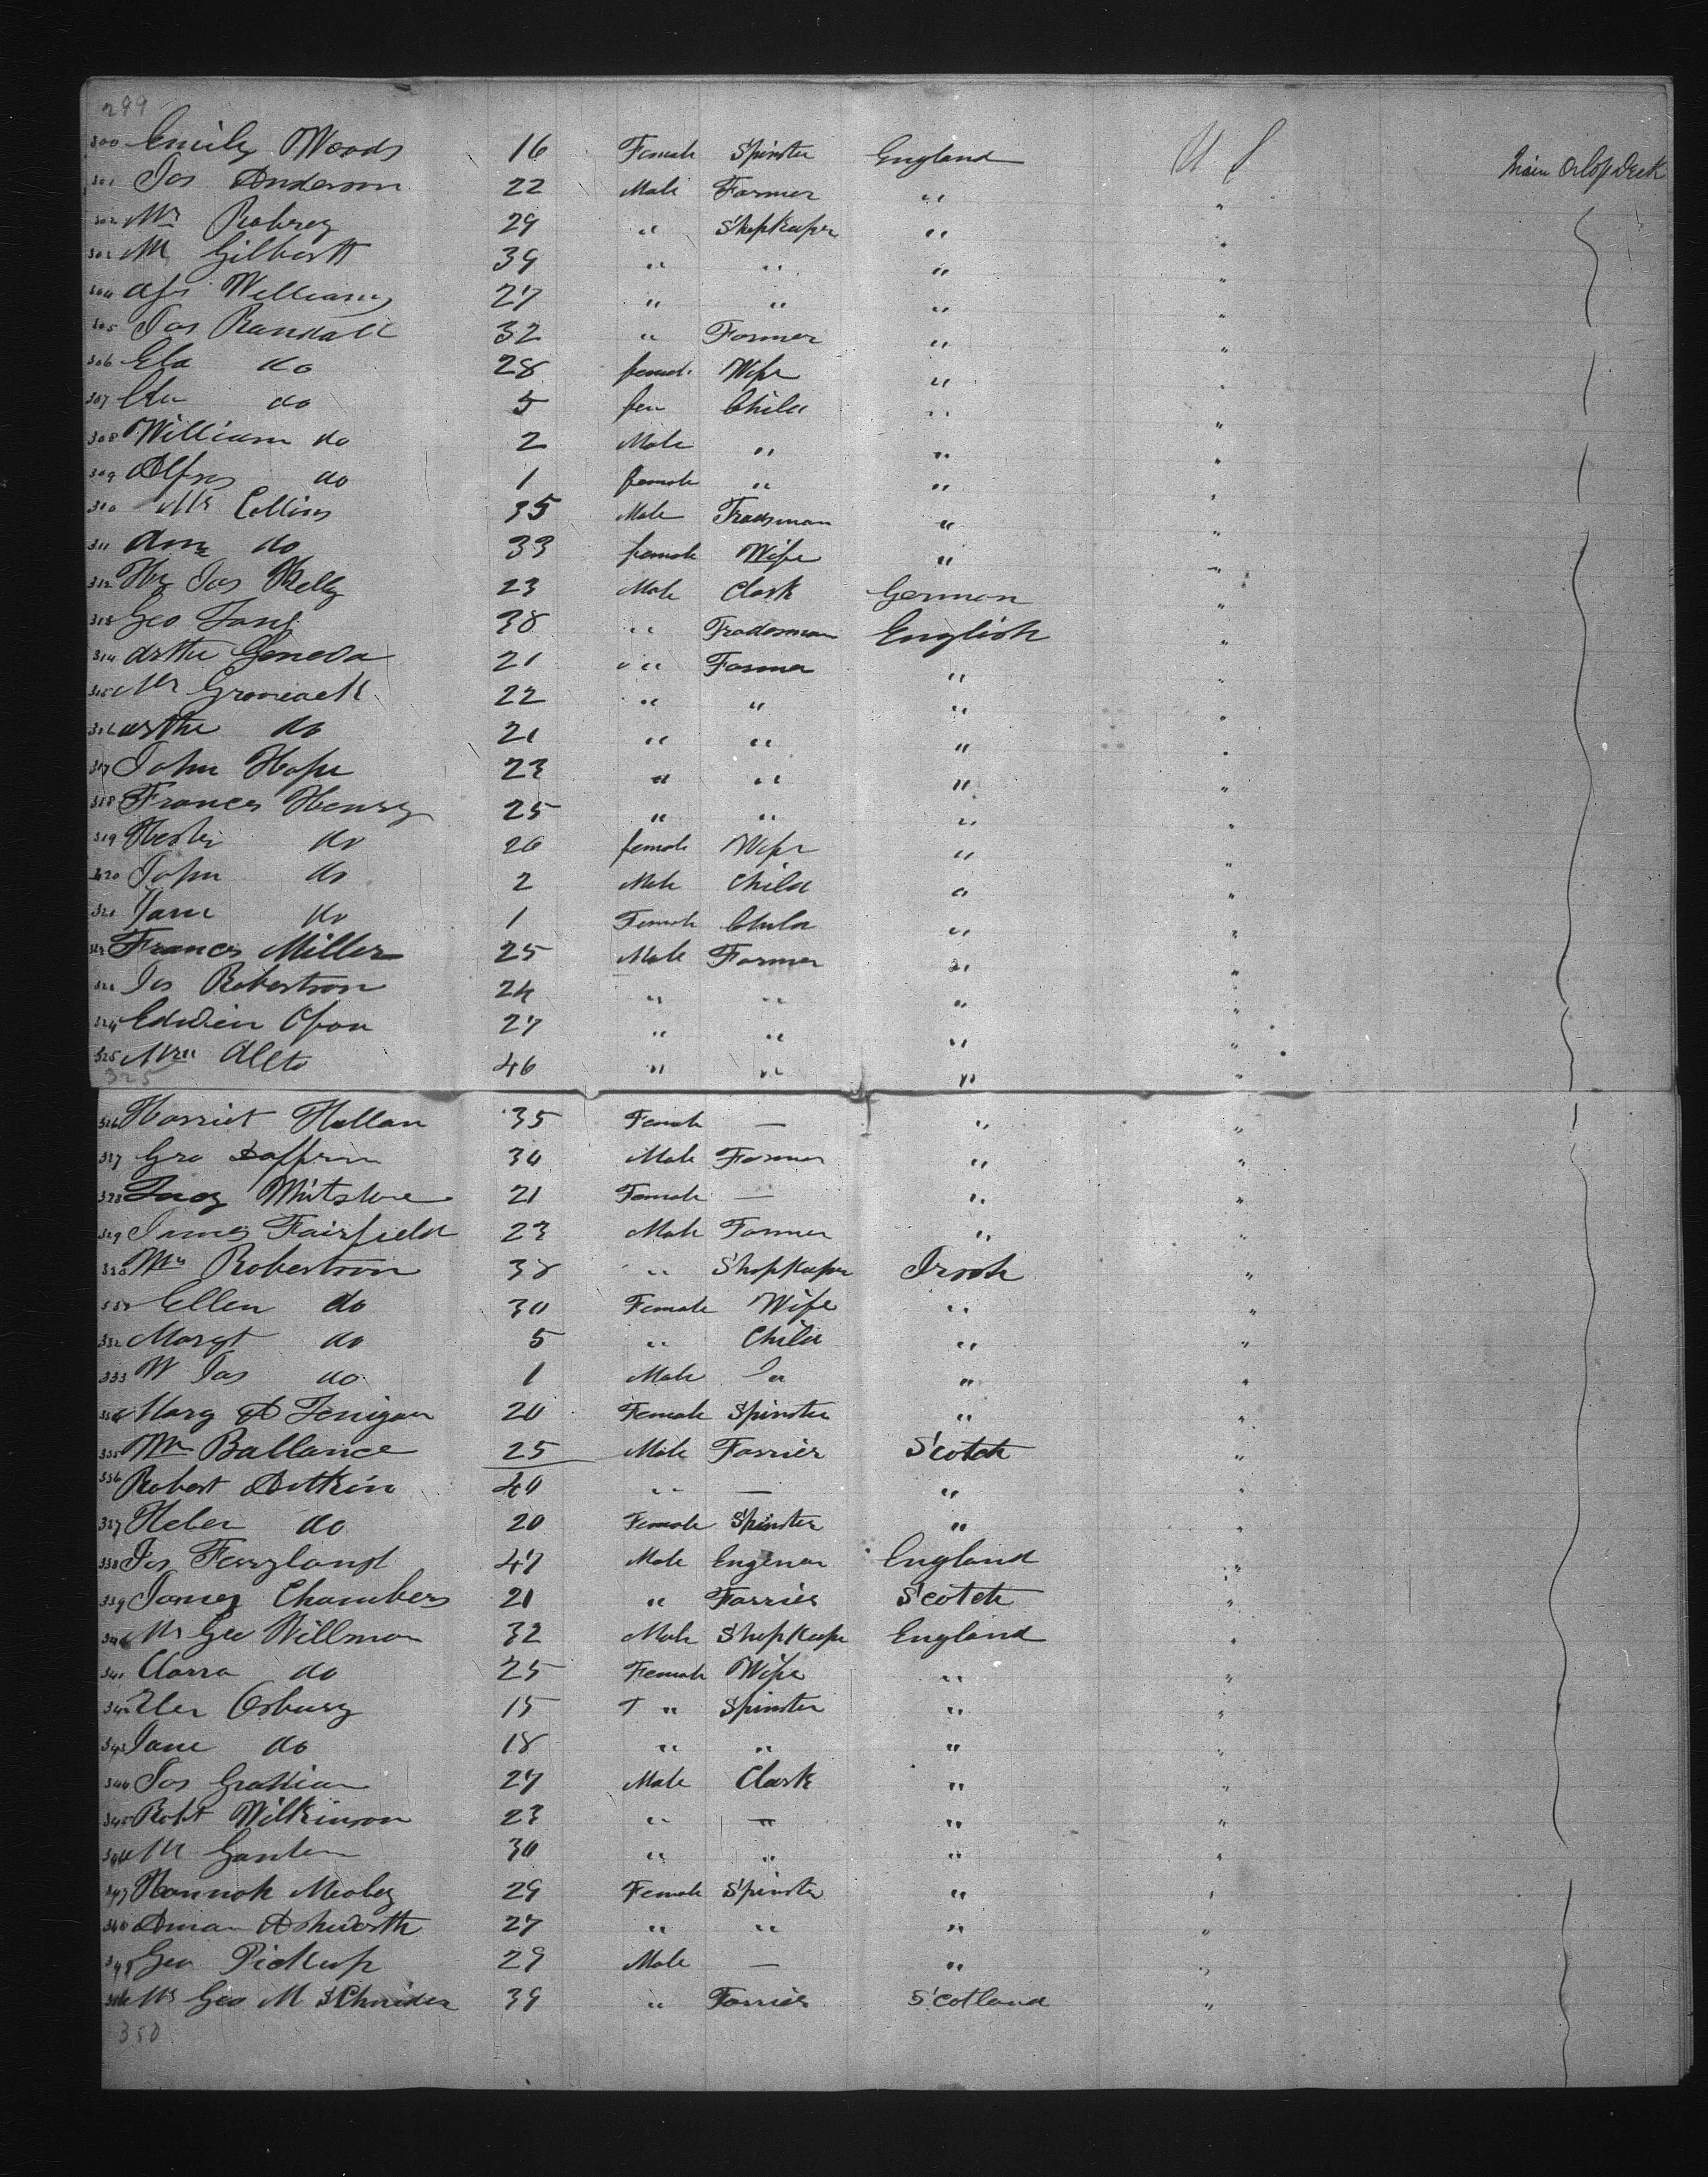 299
300 Emily Woods 16 Female Spinster England U S Main Orlop Deck
301 Jas Anderson 22 Male Farmer " "
302 Mr Robrey 29 " Shopkeeper " "
303 M Gilbertt 39 " " " "
304 Williams 27 " " " "
305 Jas Randall 32 " Farmer " "
306 Ela do 28 femal. Wife " "
307 do 5 fem Child " "
308 William do 2 Male " " "
309 Alfred do 1 female " " "
310 Mr Collins 35 Male Tradsman " "
311 Ann do 33 female Wife " "
312 Jas Kelly 23 Male Clark German "
313 Geo 38 " Tradesman English "
314 Arthu Geneva 21 " Farmer " "
315 Mr 22 " " " "
316 arthu do 21 " " " "
317 John Hope 23 " " " "
318 Frances Henry 25 " " " "
319 Hester do 26 female Wife " "
320 John do 2 Male Child " "
321 Jane do 1 Female Child " "
322 Frances Miller 25 Male Farmer " "
323 Jos Robertson 24 " " " "
324 Edwin 27 " " " "
325 Allto 46 " " " "
325
326 Harriet Hallan 35 Female — " "
327 Geo 30 Male Farmer " "
328 21 Female — " "
329 James Fairfield 23 Male Farmer " "
330 Mr Robertson 38 " Shopkeeper Irish "
331 Ellen do 30 Female Wife " "
332 Margt do 5 " Child " "
333 W Jas do 1 Male " " "
334 Marg A Fenigan 20 Female Spinster " "
335 Wm Ballance 25 Male Farrier Scotch "
336 Robert Aitkin 40 " — " "
337 Heben do 20 Female Spinster " "
338 Jos 47 Male Enginear England "
339 James Chambers 21 " Farrier Scotch "
340 Mr Geo Willman 32 Male Shopkeepr England "
341 Clarra do 25 Female Wife " "
342 Osbury 15 " Spinster " "
343 Jane do 18 " " " "
344 Jos Grattian 27 Male Clark " "
345 Robt Wilkinson 23 " " " "
346 M 30 " " " "
347 Hannah 29 Female Spinster " "
348 Ashworth 27 " " " "
349 Geo Pickup 29 Male — " "
350 Mr Geo M Schneider 39 " Farrier Scotland "
350